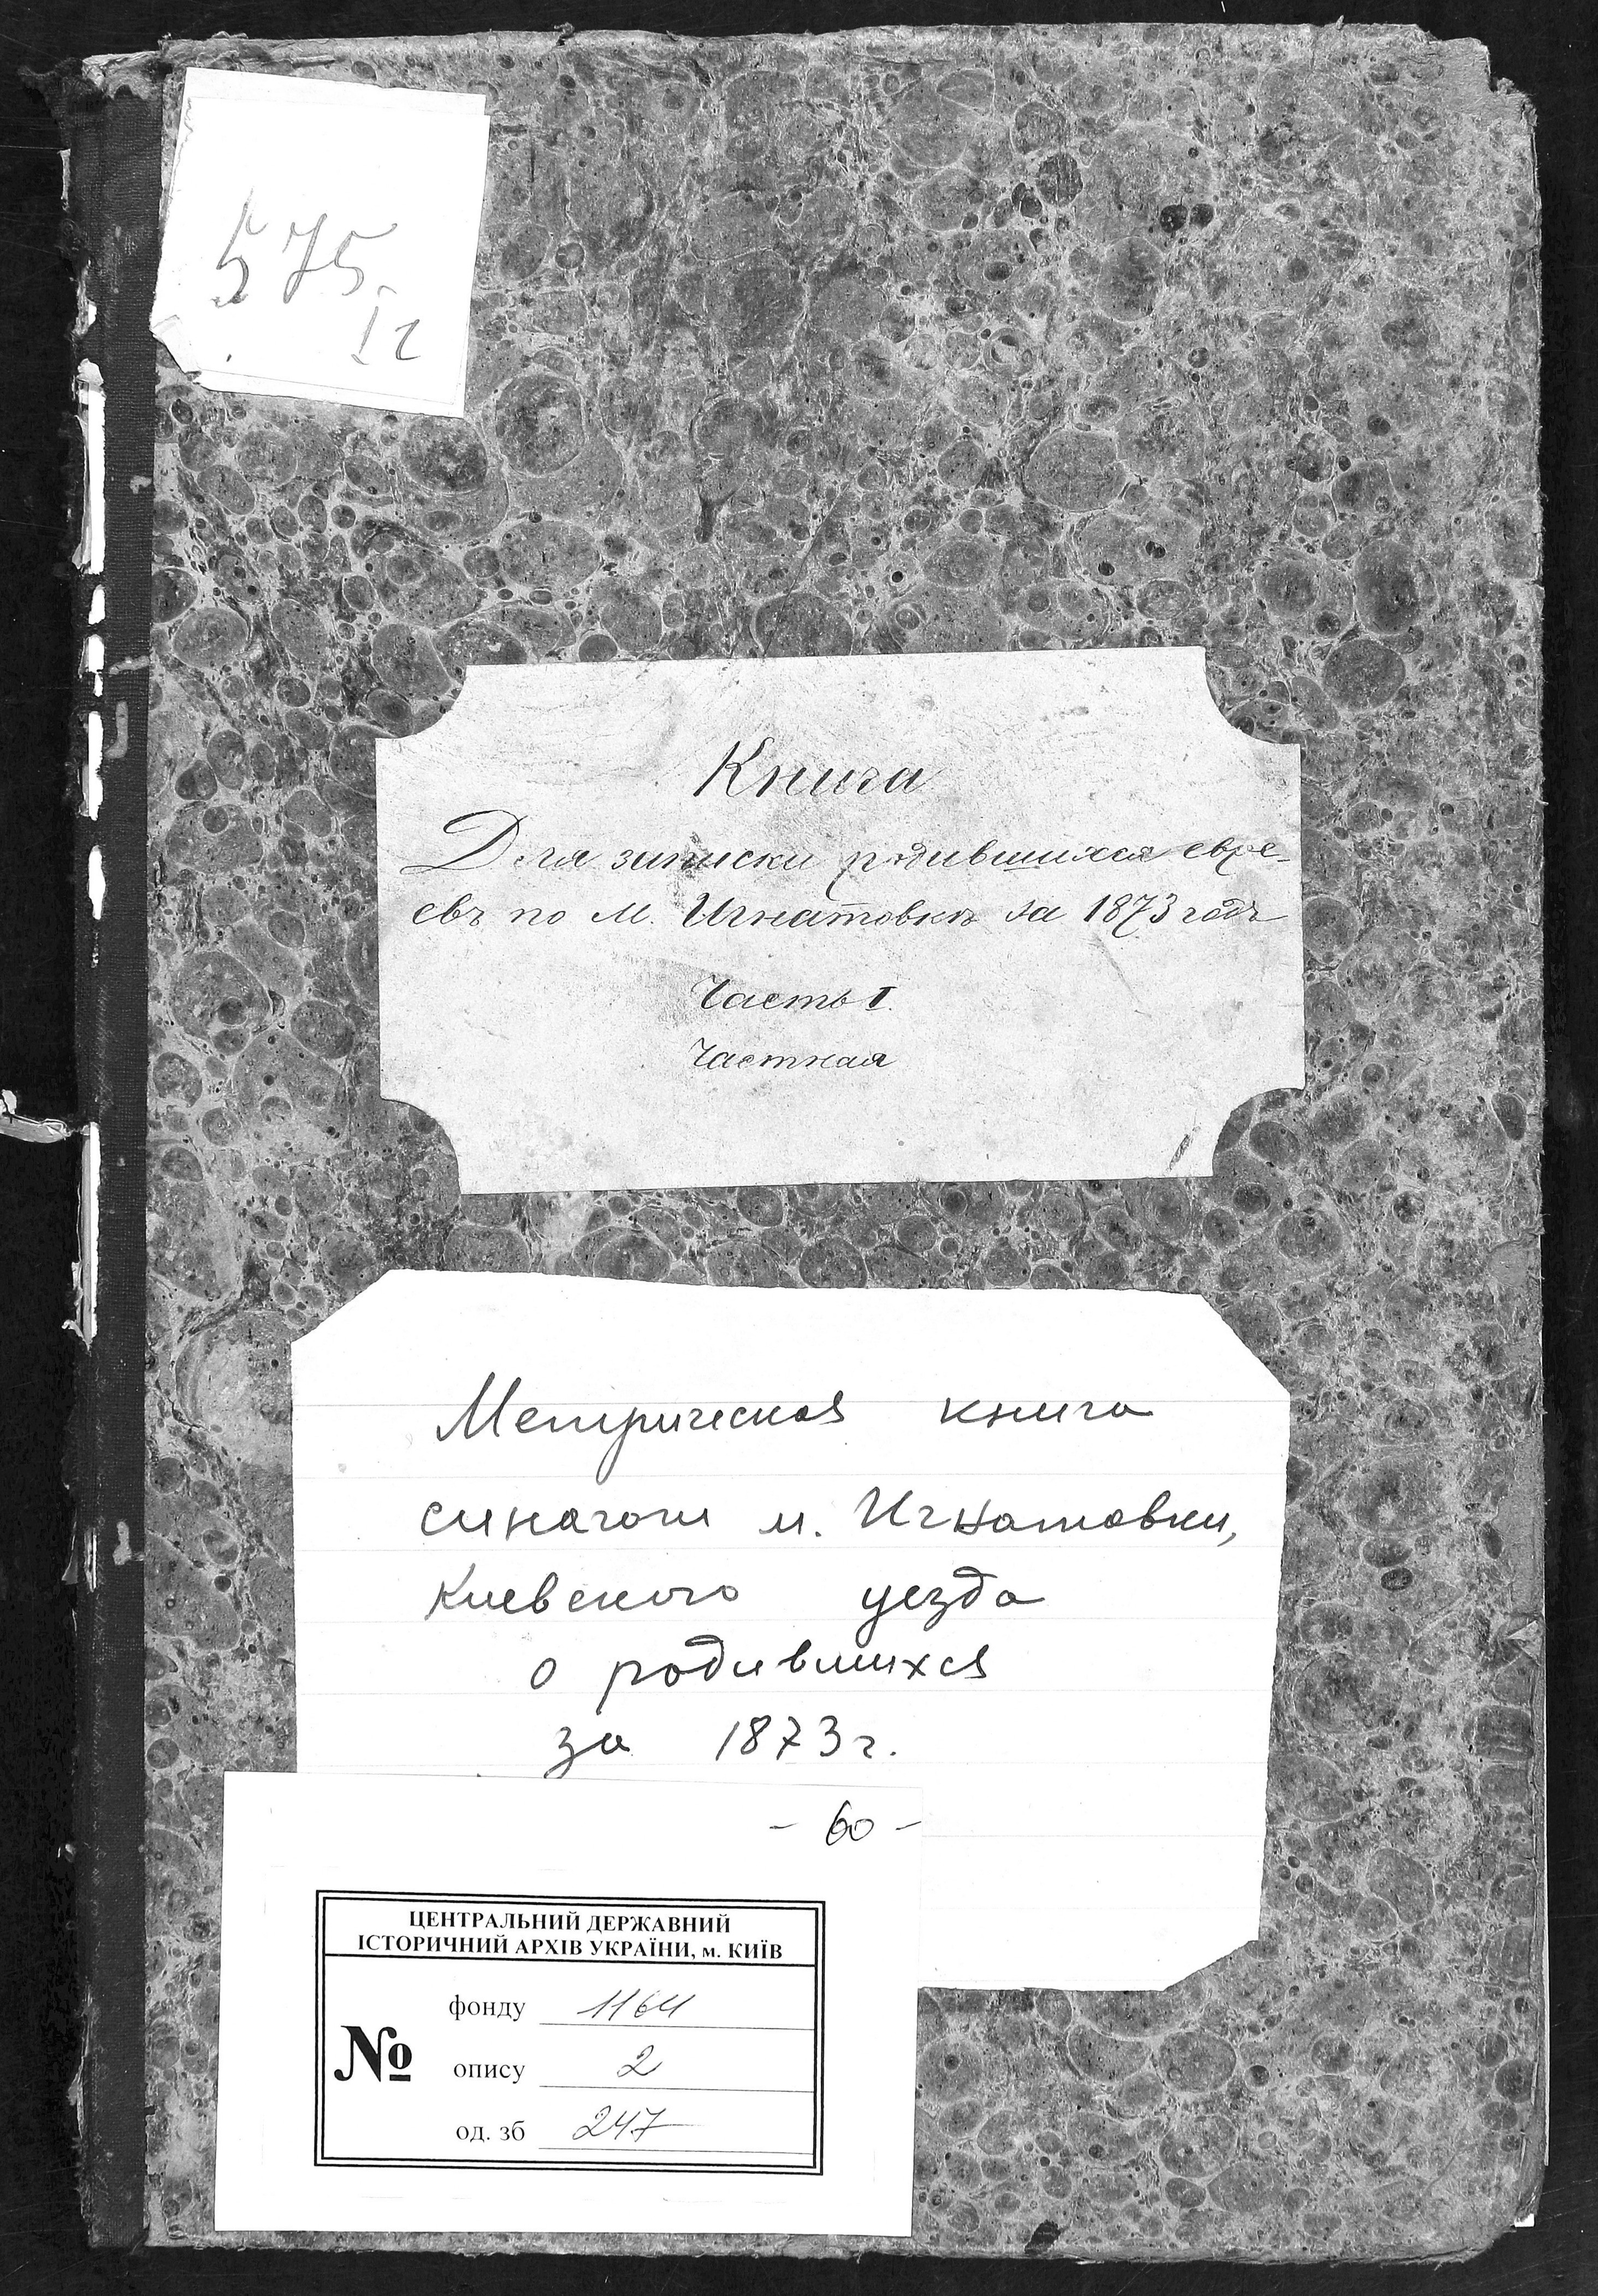 575
I г
Книга
Для записки родившихся евре-
евъ по м. Игнатовкѣ за 1873 годъ
Часть I.
Частная
Метрическая книга
синагоги м. Игнатовки,
Киевского уезда
о родившихся
за 1873 г.
- 60 -
ЦЕНТРАЛЬНИЙ ДЕРЖАВНИЙ
ІСТОРИЧНИЙ АРХІВ УКРАЇНИ, м. КИЇВ
№
фонду 1164
опису 2
од. зб 247